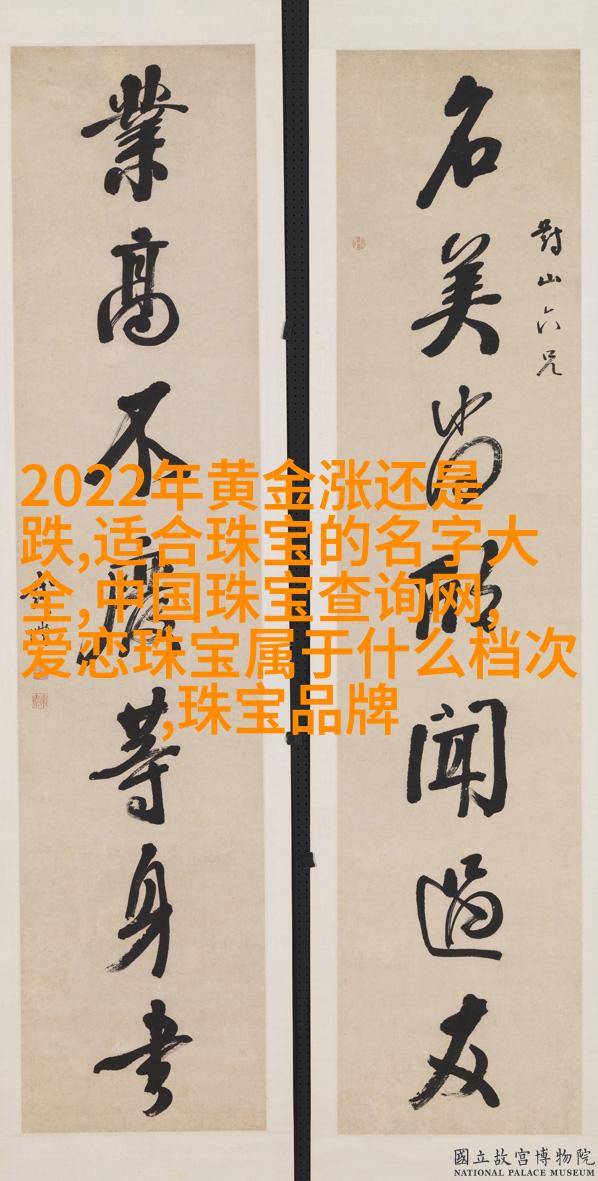 名美尚欣聞過友
對山六兄
業高不廢等身書
2022年黄金涨还是
跌,适合珠宝的名字大
全,中国珠宝查询网,
爱恋珠宝属于什么档次
,珠宝品牌
國立故宮博物院
NATIONAL PALACE MUSEUM